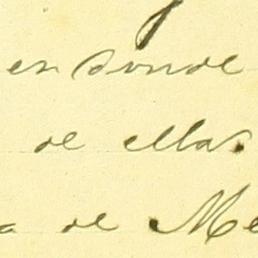 en donde
de ellas
a de Me